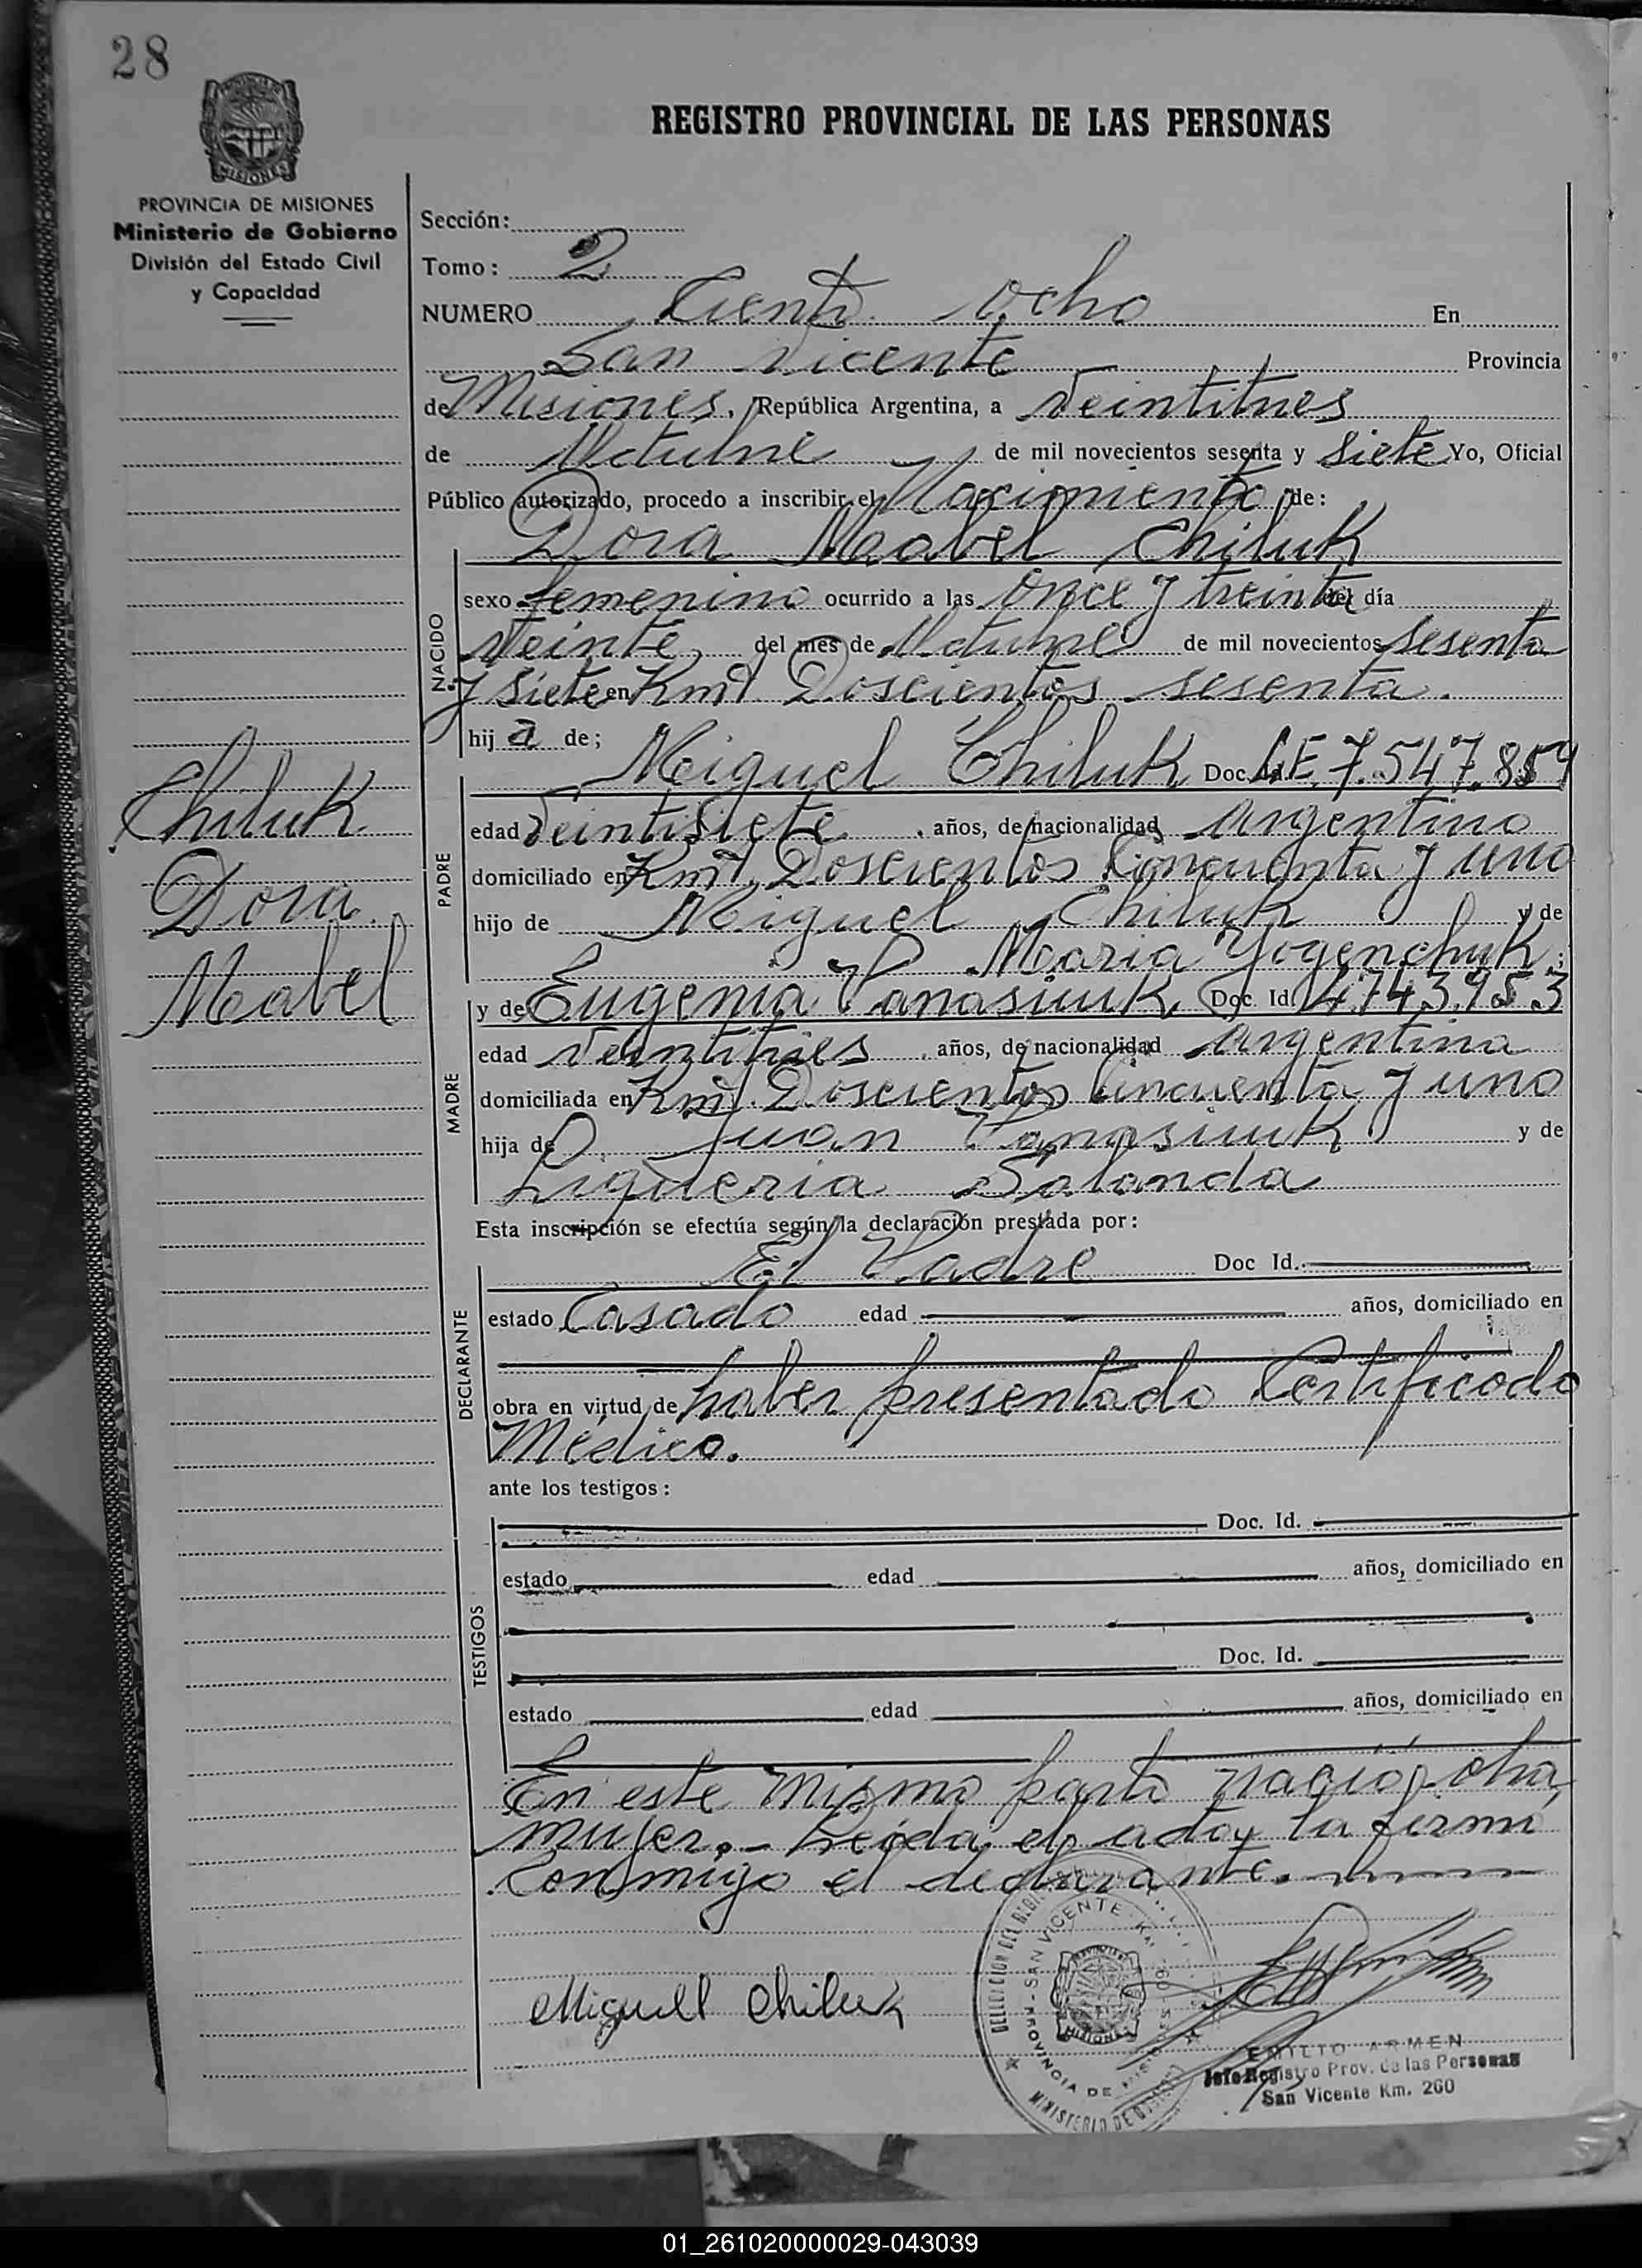 28
REGISTRO PROVINCIAL DE LAS PERSONAS
MISIONES
PROVINCIA DE MISIONES
Ministerio de Gobierno
División del Estado Civil
y Capacidad
Sección:
Tomo: 2
NUMERO Ciento ocho En
San Vicente Provincia
de Misiones, República Argentina, a veintitres
de Octubre de mil novecientos sesenta y siete Yo, Oficial
Público autorizado, procedo a inscribir el Nacimiento de:
Dora Mabel Chiluk
NACIDO
sexo femenino ocurrido a las once y treinta del día
veinte del mes de Octubre de mil novecientos sesenta
y siete en Kmt. Doscientos sesenta.
hija de;
Chiluk
Dora
Mabel
PADRE
Miguel Chiluk Doc. Id. L.E 7.547.859
edad veintisiete años, de nacionalidad argentino
domiciliado en Kmt. Doscientos Cincuenta y uno
hijo de Miguel Chiluk y de
Maria Yogenchuk;
MADRE
y de Eugenia Panasiuk Doc. Id. 4.743.953
edad veintitres años, de nacionalidad argentina
domiciliada en Kmt. Doscientos Cincuenta y uno
hija de Juan Panasiuk y de
Salanda
Esta inscripción se efectúa según la declaración prestada por:
DECLARANTE
El Padre Doc Id.
estado Casado edad años, domiciliado en
obra en virtud de haber presentado Certificado
Médico.
ante los testigos:
TESTIGOS
Doc. Id.
estado edad años, domiciliado en
Doc. Id.
estado edad años, domiciliado en
En este mismo parto nació otra
mujer.- Leída el acta, la firma
conmigo el declarante.
Miguell Chiluk
SAN VICENTE
PROVINCIA DE MISIONES
MINISTERIO DE
MISIONES
EMILIO ARMEN
Jefe Registro Prov. de las Personas
San Vicente Km. 260
01_261020000029-043039